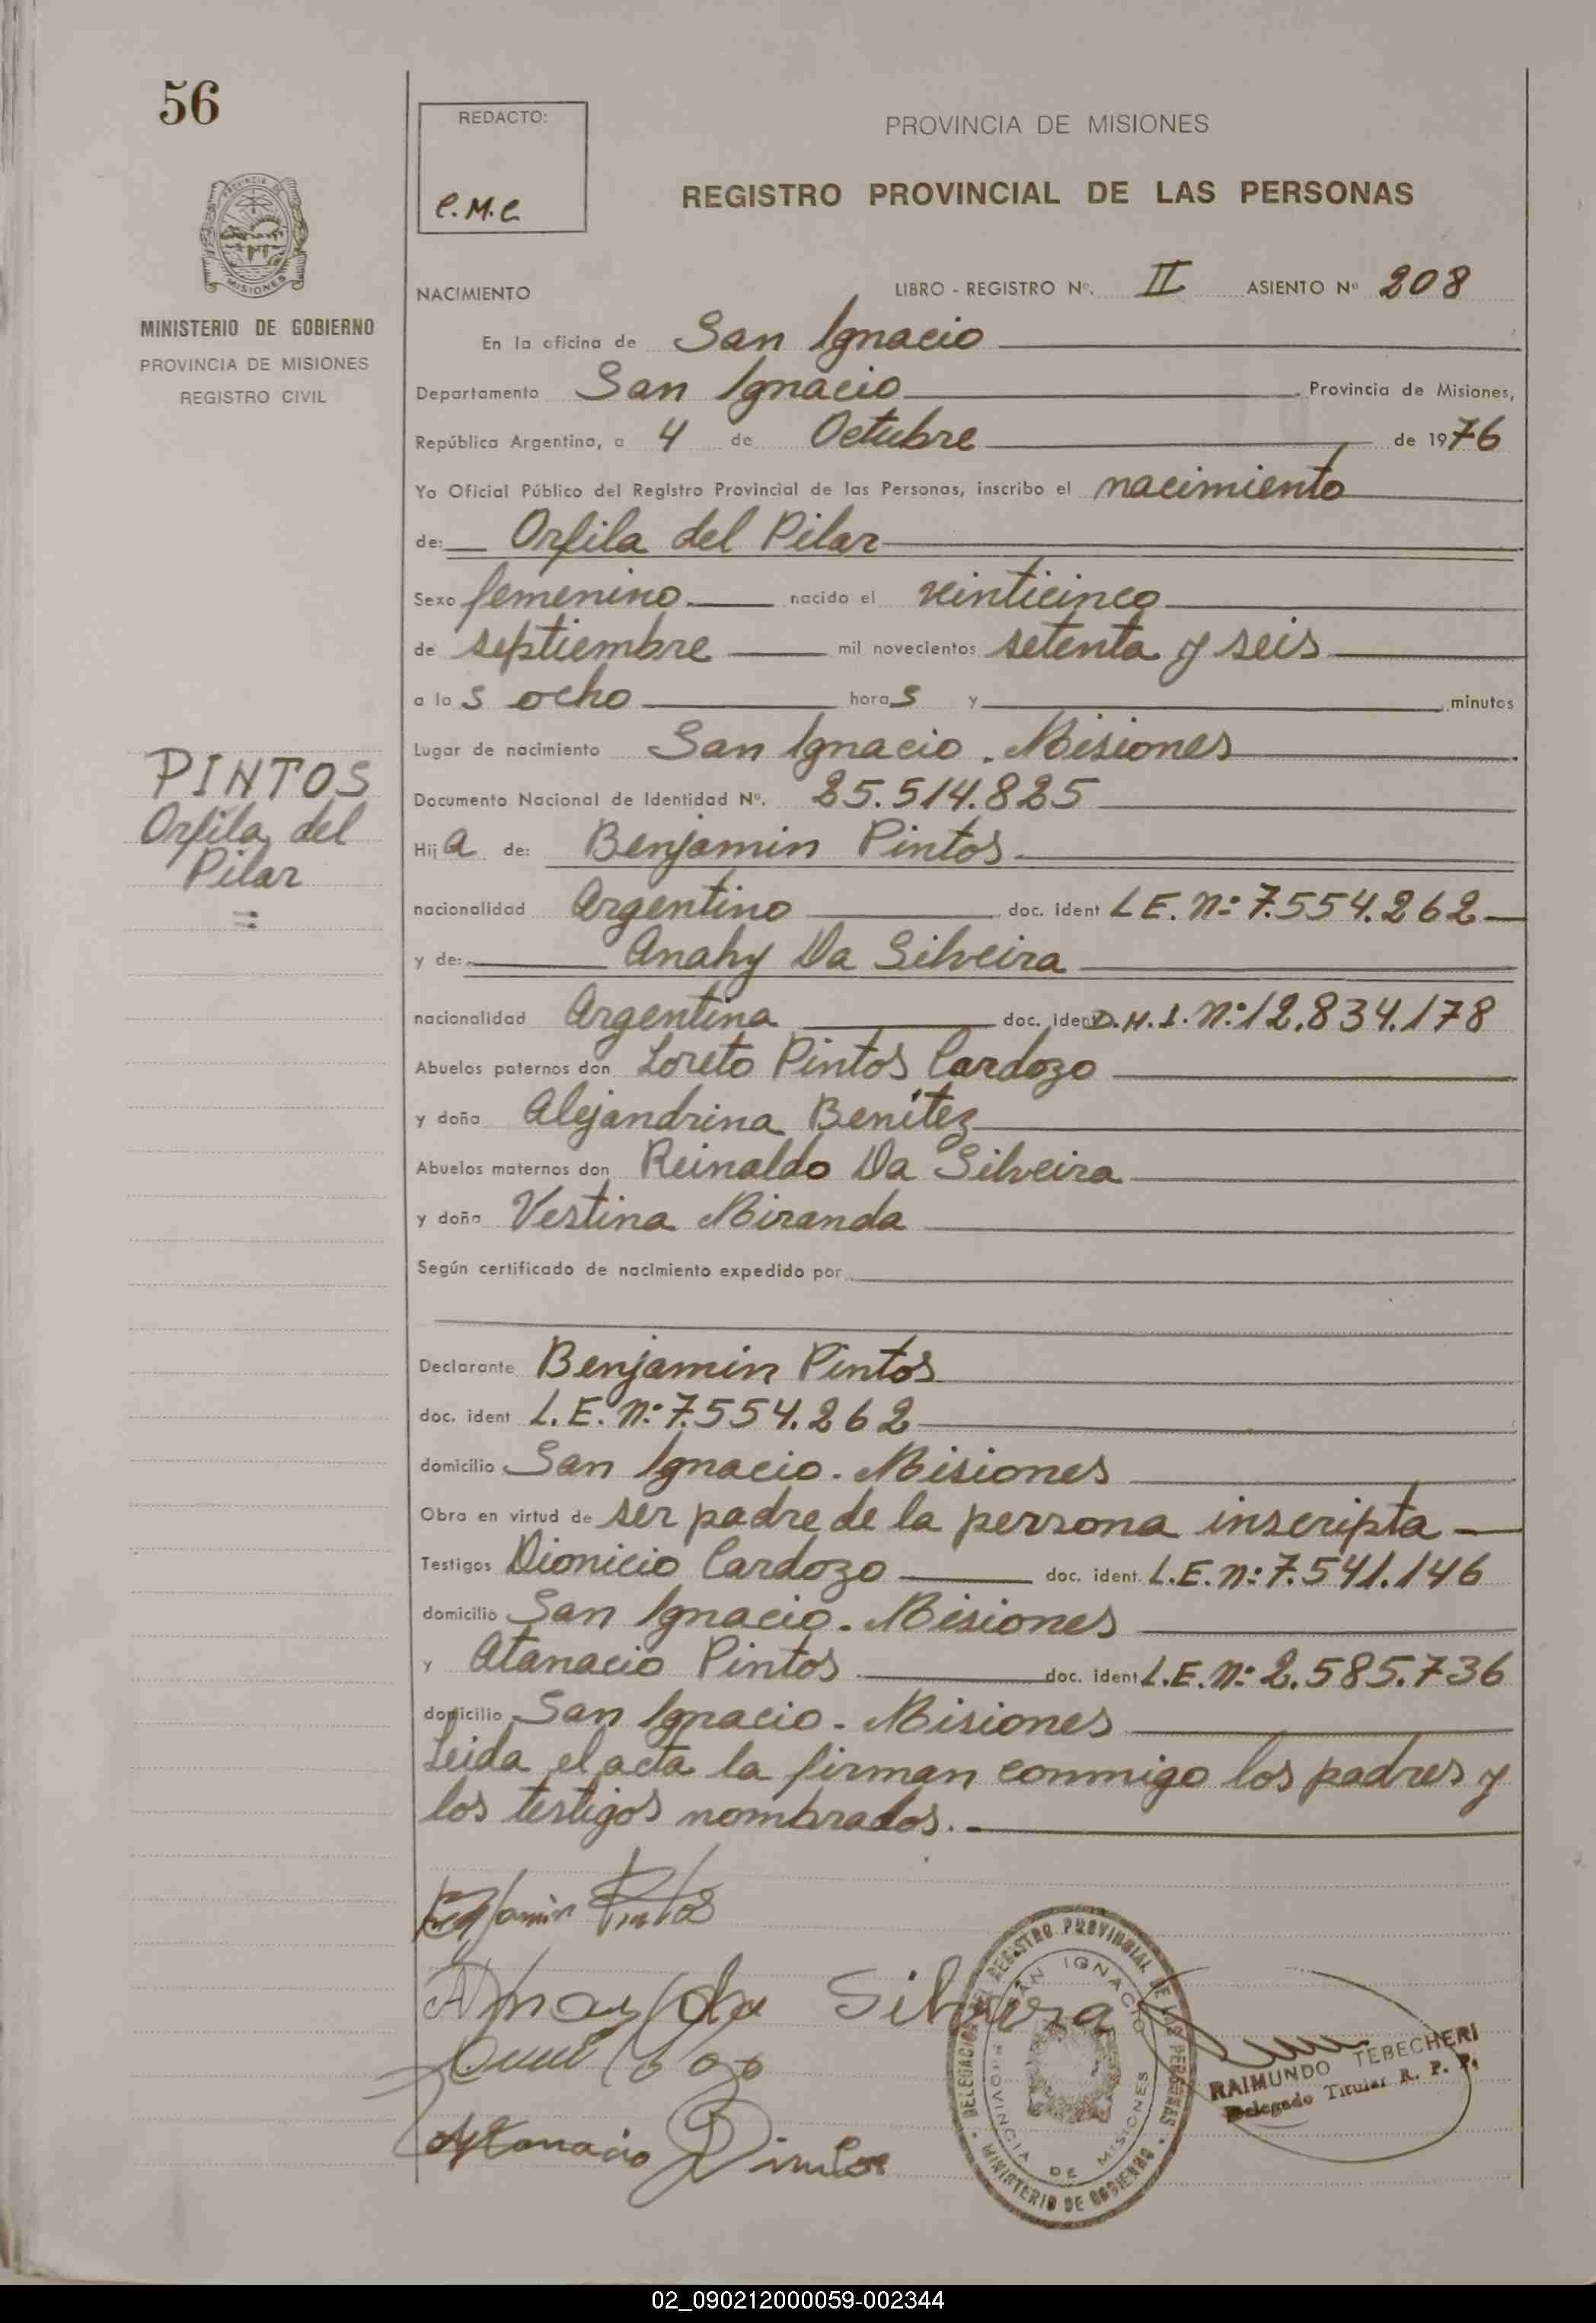 56
REDACTO:
C.M.C
PROVINCIA DE MISIONES
REGISTRO PROVINCIAL DE LAS PERSONAS
PROVINCIA DE MISIONES
MINISTERIO DE GOBIERNO
PROVINCIA DE MISIONES
REGISTRO CIVIL
NACIMIENTO LIBRO - REGISTRO Nº. II ASIENTO Nº 208
En la oficina de San Ignacio
Departamento San Ignacio. Provincia de Misiones,
República Argentina, a 4 de Octubre de 1976
Yo Oficial Público del Registro Provincial de las Personas, inscribo el nacimiento
de: Orfila del Pilar
Sexo femenino nacido el veinticinco
de septiembre mil novecientos setenta y seis
a las ocho horas y minutos
Lugar de nacimiento San Ignacio. Misiones
Documento Nacional de Identidad Nº. 25.514.825
PINTOS
Orfila del
Pilar
=
Hija de: Benjamin Pintos.
nacionalidad Argentino doc. ident L E. Nº 7.554.262
y de: Anahy Da Silveira
nacionalidad Argentina doc. ident D.N.I. Nº 12.834.178
Abuelos paternos don Loreto Pintos Cardozo
y doña Alejandrina Benítez
Abuelos maternos don Reinaldo Da Silveira
y doña Vestina Miranda
Según certificado de nacimiento expedido por
Declarante Benjamin Pintos
doc. ident L.E. Nº 7.554.262
domicilio San Ignacio. Misiones
Obra en virtud de ser padre de la persona inscripta
Testigos Dionicio Cardozo doc. ident. L.E. nº 7.541.146
domicilio San Ignacio. Misiones
y Atanacio Pintos doc. ident L.E. Nº 2.585.736
domicilio San Ignacio. Misiones
Leida el acta la firman conmigo los padres y
los testigos nombrados.
Benjamin Pintos
Anay da Silvera
Atanacio Pintos
DELEGACION DEL REGISTRO PROVINCIAL DE LAS PERSONAS
MINISTERIO DE GOBIERNO
SAN IGNACIO
PROVINCIA DE MISIONES
RAIMUNDO TEBECHERI
Delegado Titular R. P. P.
02_090212000059-002344